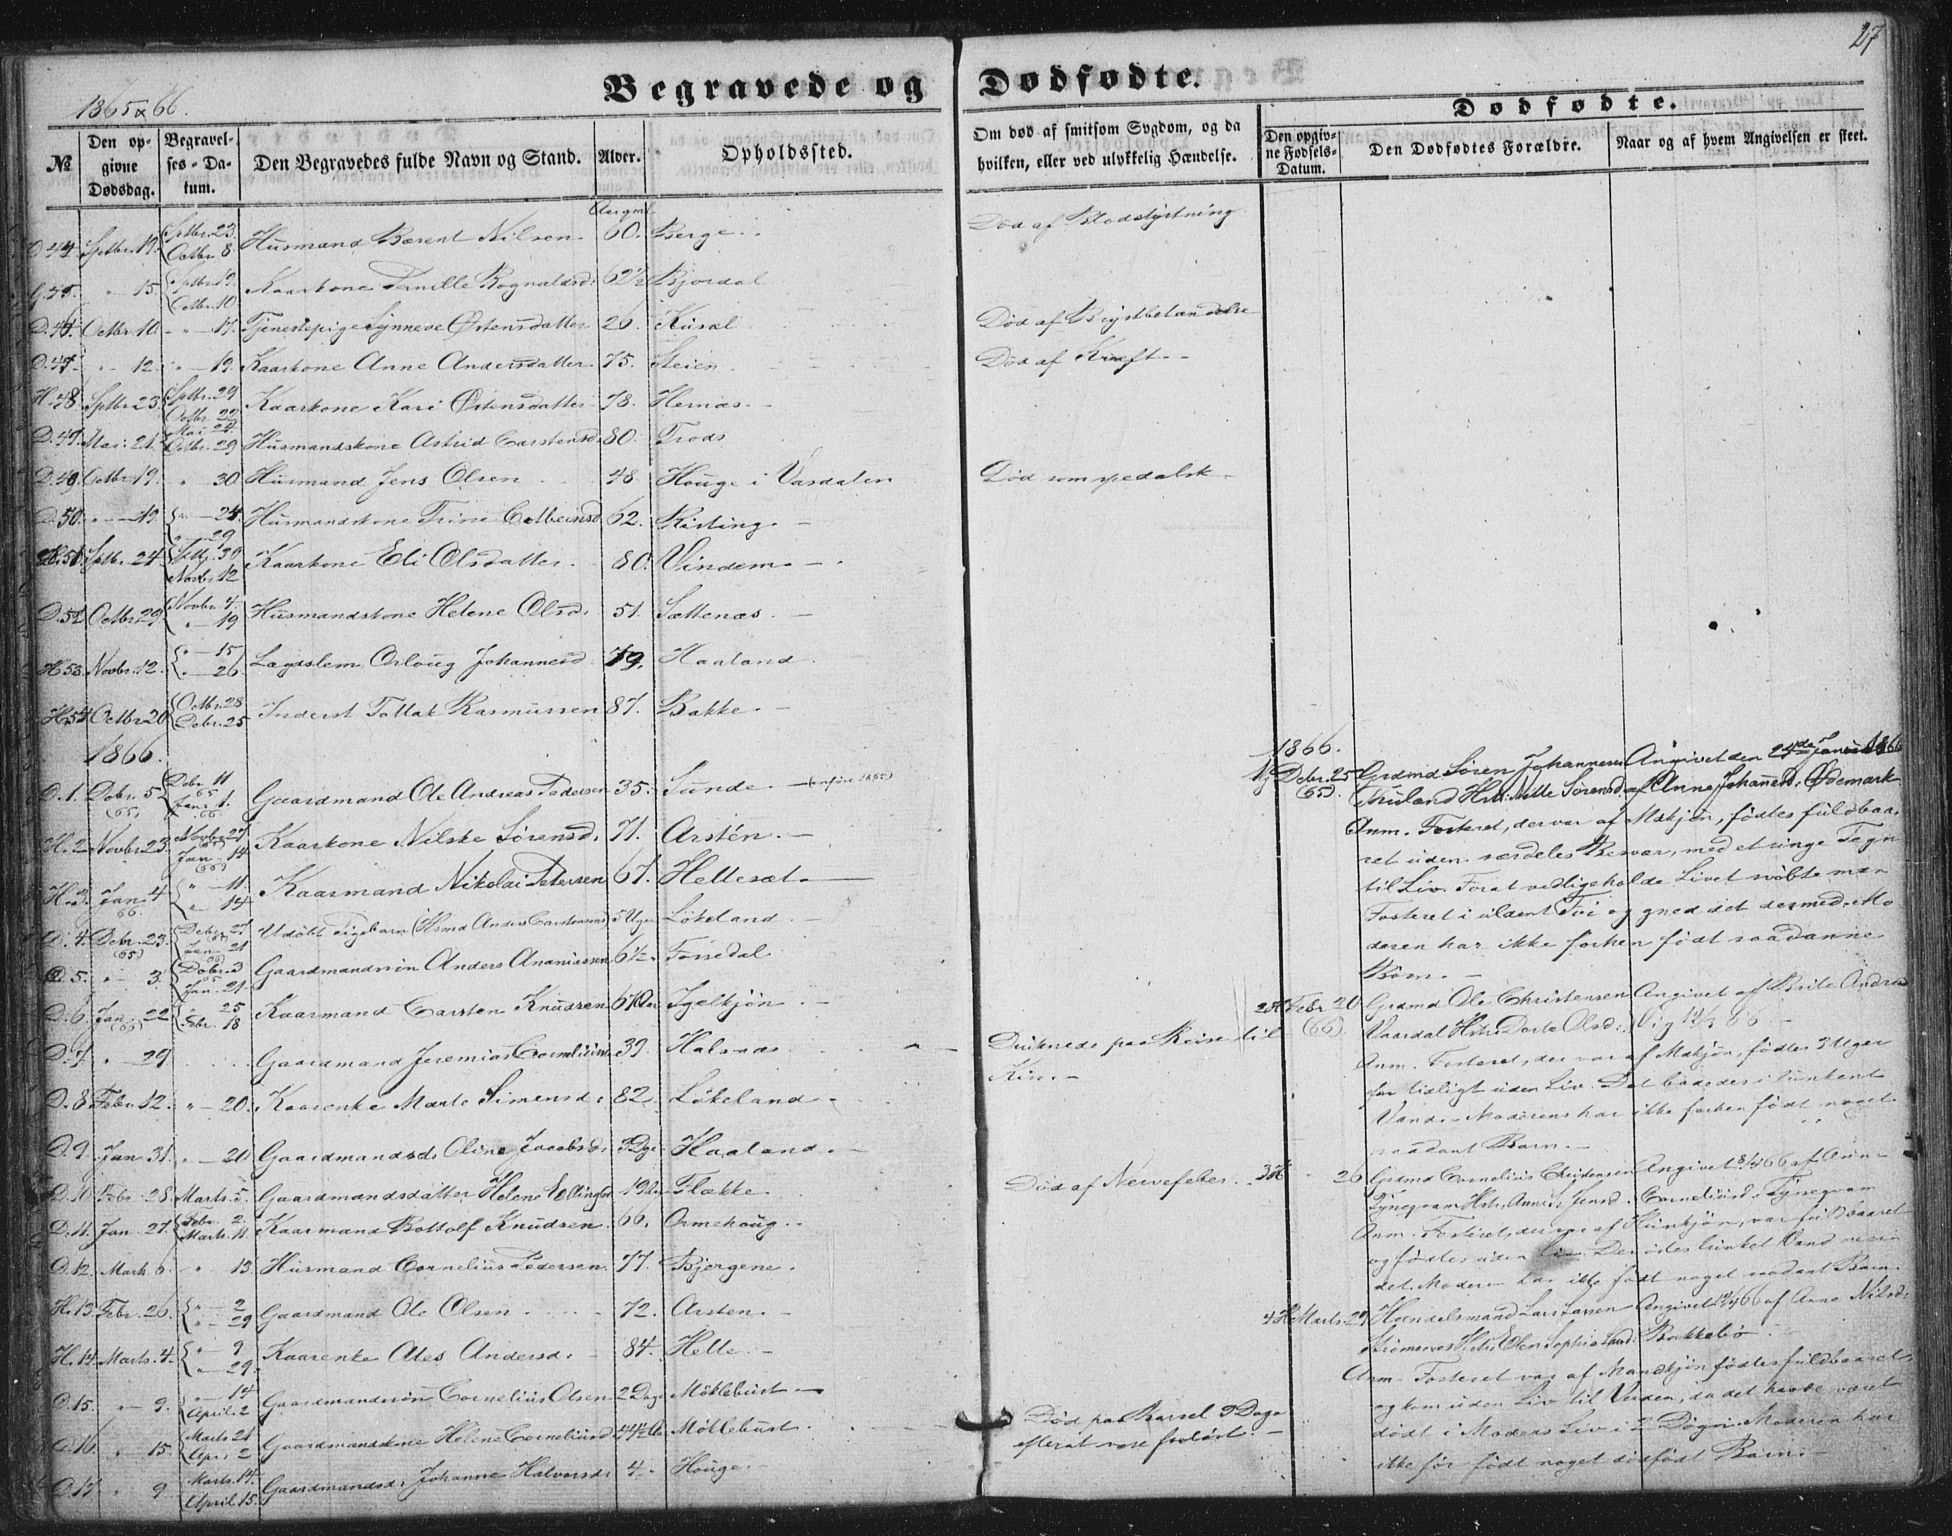 27
Begravede og Dødfødte.
1865 & 66.
Dødfødte.
№
Den opgivne Dødsdag.
Begravelses-Datum.
Den Begravedes fulde Navn og Stand.
Alder.
Opholdssted.
Om død af smitsom Sygdom, og da hvilken, eller ved ulykkelig Hændelse.
Den opgivne Fødsels-Datum.
Den Dødfødtes Forældre.
Naar og af hvem Angivelsen er skeet.
D. 44. Sptbr. 19. Sptbr. 23. Octbr. 8 Husmand Berent Nilsen. 60. Berge. Død af Blodstyrtning
45. " 15. Sptbr. 19. Octbr. 10 Kaarkone Pernille Rognaldsd: 62½ Bjordal
D. 46. Octbr. 10. " 17. Tjenestepige Synneve Østensdatter 26. Død af Brystbetændelse
D. 47. " 12. " 19. Kaarkone Anne Andersdatter 75. Steien Død af Kræft.
H. 48. Sptbr. 23. Sptbr. 29 Octbr. 22 Kaarkone Kari Østensdatter 78. Hernæs.
D. 49. Mai. 21. Mai. 24. Octbr. 29 Husmandskone Astrid Carstensd. 80.
Octbr. 19. " 30 Husmand Jens Olsen 48 Houge i Vasdalen Død som spedalsk.
D. 50. " 19. " 24. " 29 Husmandskone 62.
51. Sptbr. 24. Sptbr. 30 Novbr. 12 Kaarkone Eli Olsdatter. 80. Vindem.
D. 52 Octbr. 29. Novbr. 4. " 19 Husmandskone Helene Olsd: 51. Sættenæs.
H. 53. Novbr. 12. " 15 " 26 Lægdslem Johannesd. 79. Haaland
H. 54 Octbr. 20 Octbr. 28 Decbr. 25 Inderst Tollak Rasmussen 87. Bakke.
1866.
D. 1. Decbr. 5 (65) Decbr. 11 65 Jan. 1. 66. Gaardmand Ole Andreas Pedersen 35. Sunde. (anføres 1865)
H. 2. Novbr. 23. Novbr. 27 (65) Jan. 14 (66) Kaarkone Nilske Sørensd. 71. Arstén.
H. 3. Jan. 4 66. " 11. " 14 Kaarmand Nikolai Petersen 67. Hellesæt.
D. 4. Decbr. 23. (65) Jan. 21 Udøbt Pigebarn (Hsmd Anders Carstensens) 5 Uger Løkeland.
D. 5. " 3. Decbr. 3 Jan. 21 Gaardmandssøn Anders Ananiassen 6½. Førsdal
D. 6. Jan. 22 " 25 Febr. 18 Kaarmand Carsten Knudsen 67 Igelkjøn.
D. 7. " 29 Gaardmand Jeremias Corneliussen 39. Halsnæs Druknede paa Reise til Kirke.
D. 8 Febr. 12. " 20. Kaarenke Marte Simensd: 82. Løkeland.
D. 9. Jan. 31. " 20. Gaardmandsd. Oline Jacobsd: Haaland.
D. 10. Febr. 28. Marts. 5. Gaardmandsdatter Helene 19 Flække. Død af Nervefeber.
D. 11. Jan. 27. Febr. 2. Marts. 11. Kaarmand Bottolf Knudsen. 66. Ormehoug.
D. 12. Marts. 6. " 13. Husmand Cornelius Pedersen. 77. Bjergene.
H. 13 Febr. 26. " 2 " 29 Gaardmand Ole Olsen 72. Arsten.
H. 14. Marts. 4. " 9 " 29. Kaarenke Ales Andersd: 84. Helle.
D. 15. " 9. " 14 April. 2 Gaardmandssøn Cornelius Olsen 2 Dage Møklebust
D. 16. " 15. Marts 21 April 2 Gaardmandskone Helene Corneliusd 44½ Møklebust. Død paa Barsel 9 Dage efter at være forløst.
D. 17 " 9. Marts. 14. April. 15. Gaardmandsd: Johanne Halvorsd: 4. Houge.
1866.
Decbr. 25 (65). Grdmd Søren Johannesen Angivet den 24de Januar 1866
Hst: Mette Sørensd. af Anne Johannesd: Ødemark
Anm. Fosteret, der var af Mskjøn, fødtes fuldbaaret uden særdeles Besvær, med et ringe Tegn
til Liv. For at vedligeholde Livet svøbte man
Fosteret i uldent Tøi og gned det dermed. Moderen har ikke forhen født saadanne
Børn.
2 H Febr. 20 (66). Grdmd Ole Christensen Angivet af Brite Andersd
Vaardal Hst: Dorte Olsd: Vig 66
Anm. Fosteret, der var af Mskjøn, fødtes 3 Uger
for tidligt uden Liv. Det badedes i lunkent
Vand. Moderen har ikke forhen født noget
saadant Barn.
3 H " 26 Grdmd Cornelius Christensen Angivet 66 af Anne
Hst: Anne Jensd: Corneliusd:
Anm. Fosteret, der var af Kvinkjøn, var fuldbaaret
og fødtes uden Liv. lunket Vand
det. Moderen har ikke født noget saadant Barn.
4 H Marts. 29 Handelsmand Lars Larsen Angivet 66 af Anne Nilsd:
Hst: Ellen Sophie Bakkebø.
Anm. Fosteret var af Mandkjøn fødtes fuldbaaret,
og kom uden Liv til Verden, da det havde været
dødt i Moders Liv i 2 Døgn. Moderen har
ikke før født noget dødfødt Barn.